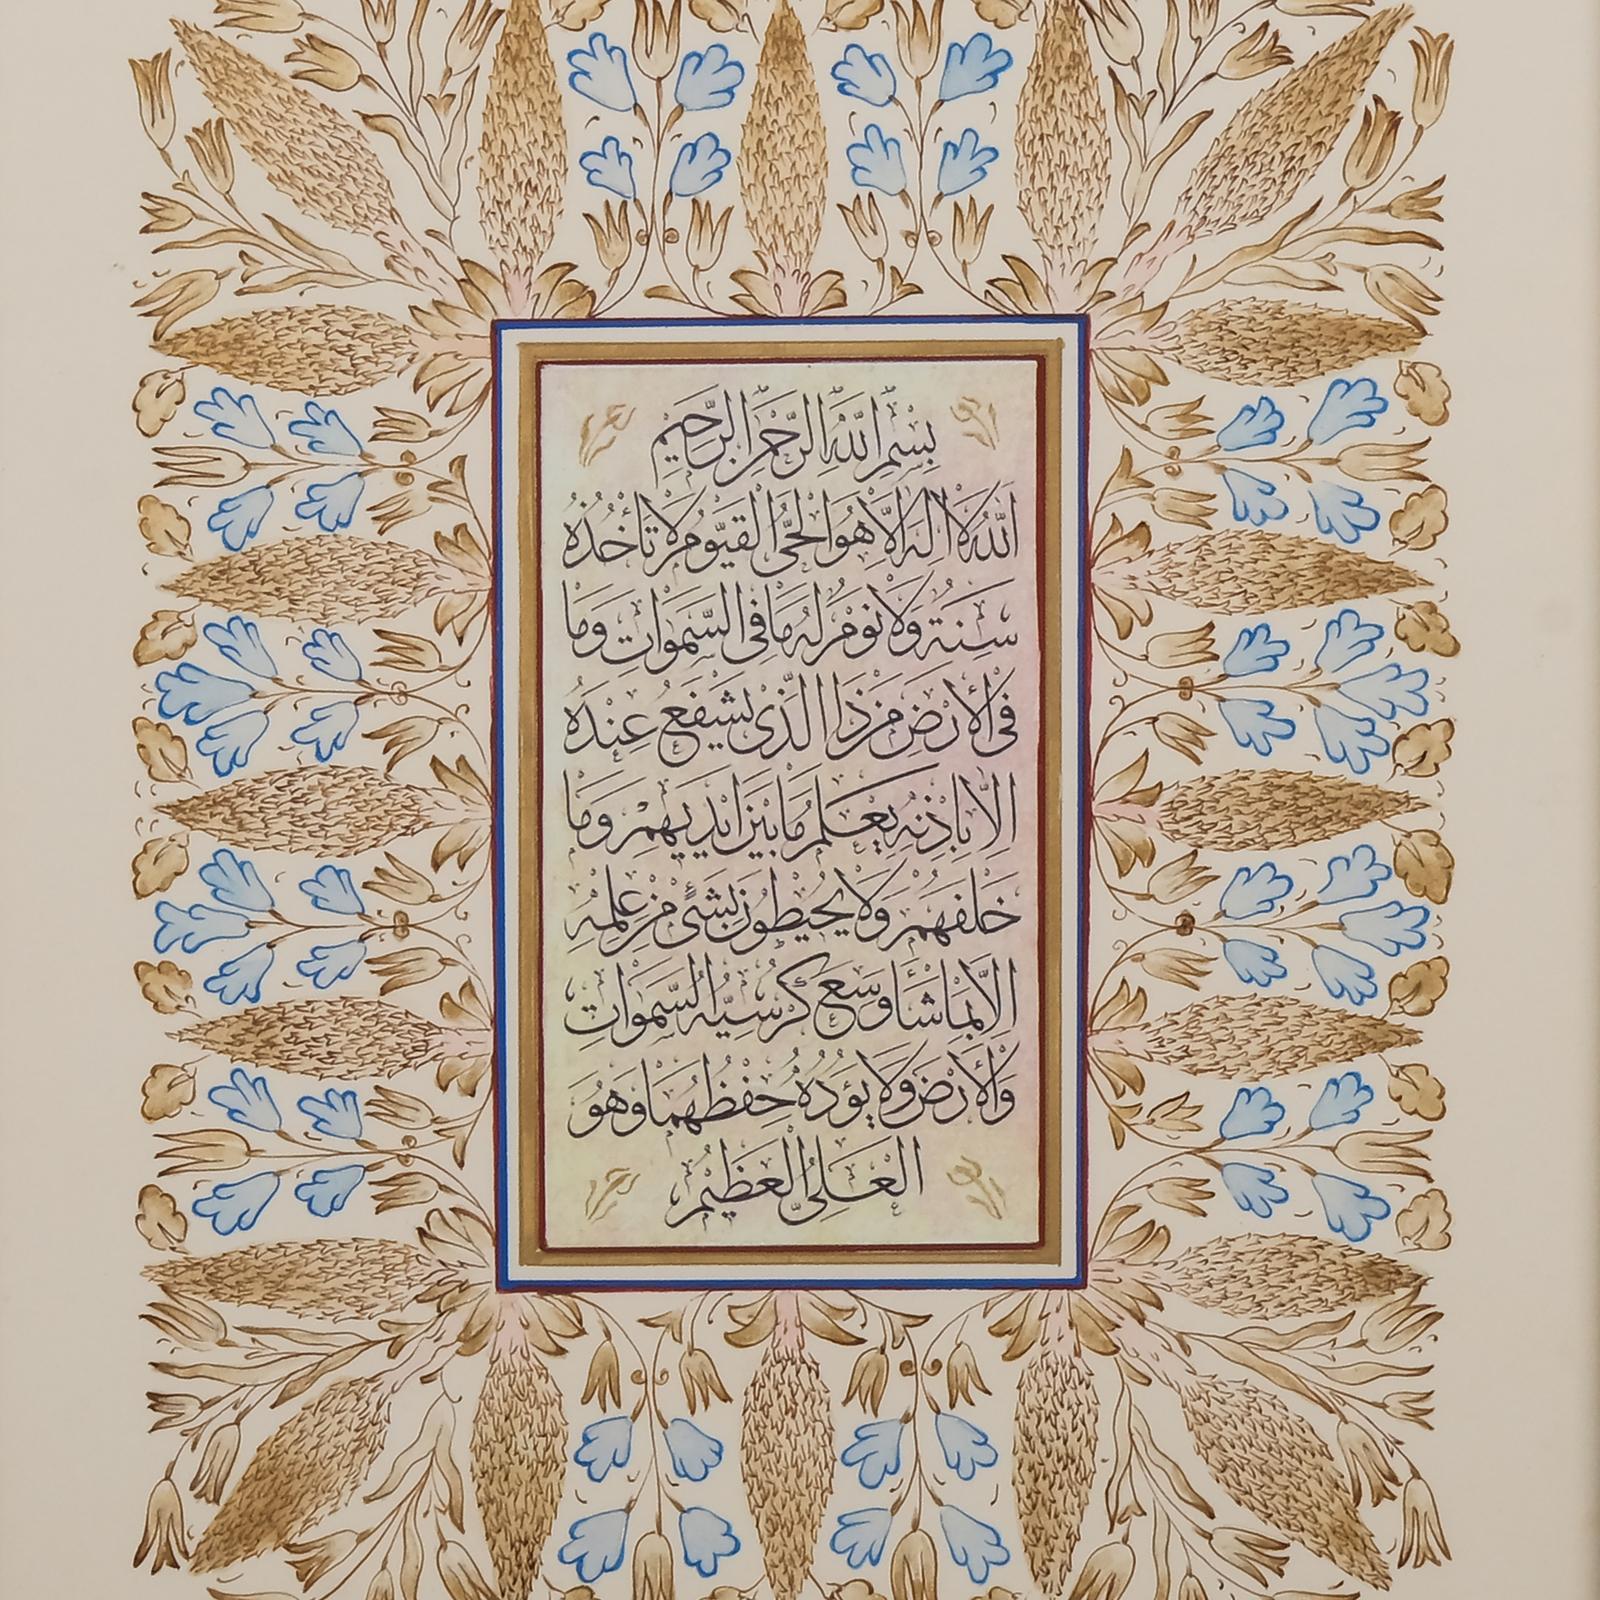 بِسْمِ اللّٰهِ الرَّحْمٰنِ الرَّحِيمِ
اَللّٰهُ لَا اِلٰهَ اِلَّا هُوَ الْحَىُّ الْقَيُّومُ لَا تَأْخُذُهُ
سِنَةٌ وَلَا نَوْمٌ لَهُ مَا فِى السَّمٰوَاتِ وَمَا
فِى الْاَرْضِ مَنْ ذَا الَّذِى يَشْفَعُ عِنْدَهُ
اِلَّا بِاِذْنِهِ يَعْلَمُ مَا بَيْنَ اَيْدِيهِمْ وَمَا
خَلْفَهُمْ وَلَا يُحِيطُونَ بِشَىْءٍ مِنْ عِلْمِهِ
اِلَّا بِمَا شَاءَ وَسِعَ كُرْسِيُّهُ السَّمٰوَاتِ
وَالْاَرْضَ وَلَا يَؤُدُهُ حِفْظُهُمَا وَهُوَ
الْعَلِىُّ الْعَظِيمُ